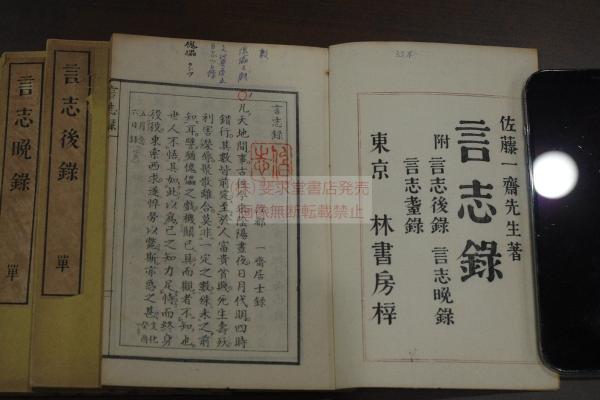 佐藤一齋先生著
言志錄
附 言志後錄 言志晩錄
言志耋錄
東京 林書房梓
言志錄
一齋居士錄
凡天地間事古往今來陰陽晝夜日月代明四時
錯行其數皆前定至於人富貴貧賤死生壽殀
利害榮辱聚散離合莫非一定之數殊未之前
知耳譬猶傀儡之戲機關已具而觀者不知也
世人不悟其如此以爲己之知力足恃而終身
役役東索西求遂悴勞以斃斯亦惑之甚
言志錄
言志後錄
單
言志晩錄
單
(株)斐求堂書店発売
画像無断転載禁止